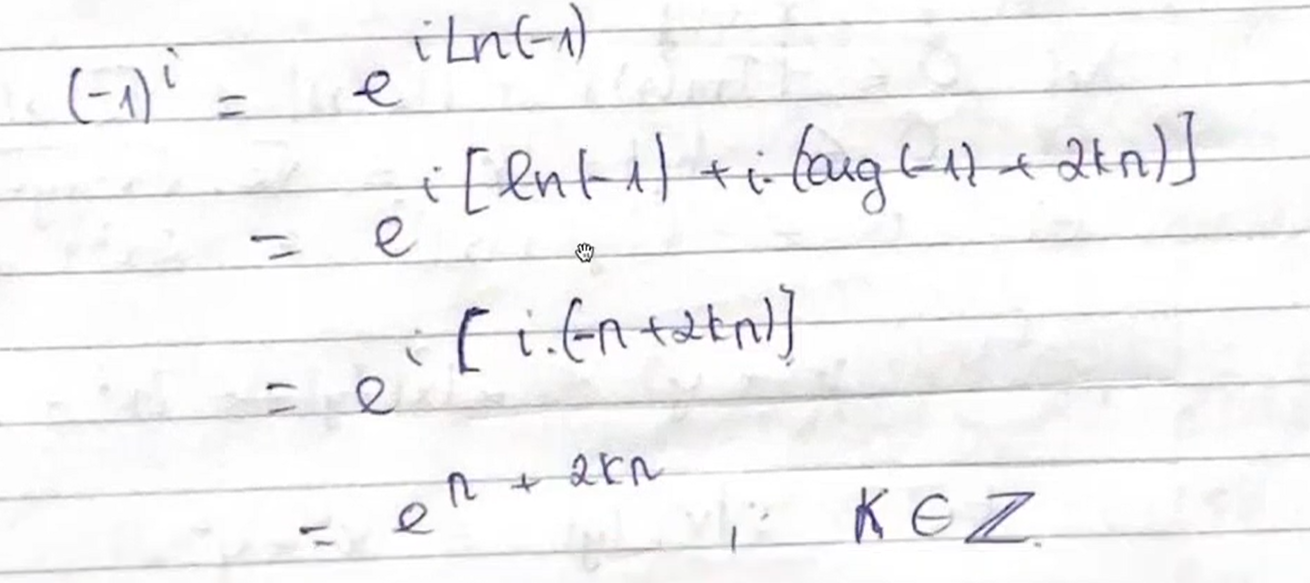 (-1)^i = e^{i Ln(-1)}
= e^{i [ln|-1| + i. (arg (-1) + 2kπ)]}
= e^{i [i.(-π + 2kπ)]}
= e^{π + 2kπ} , K ∈ Z.